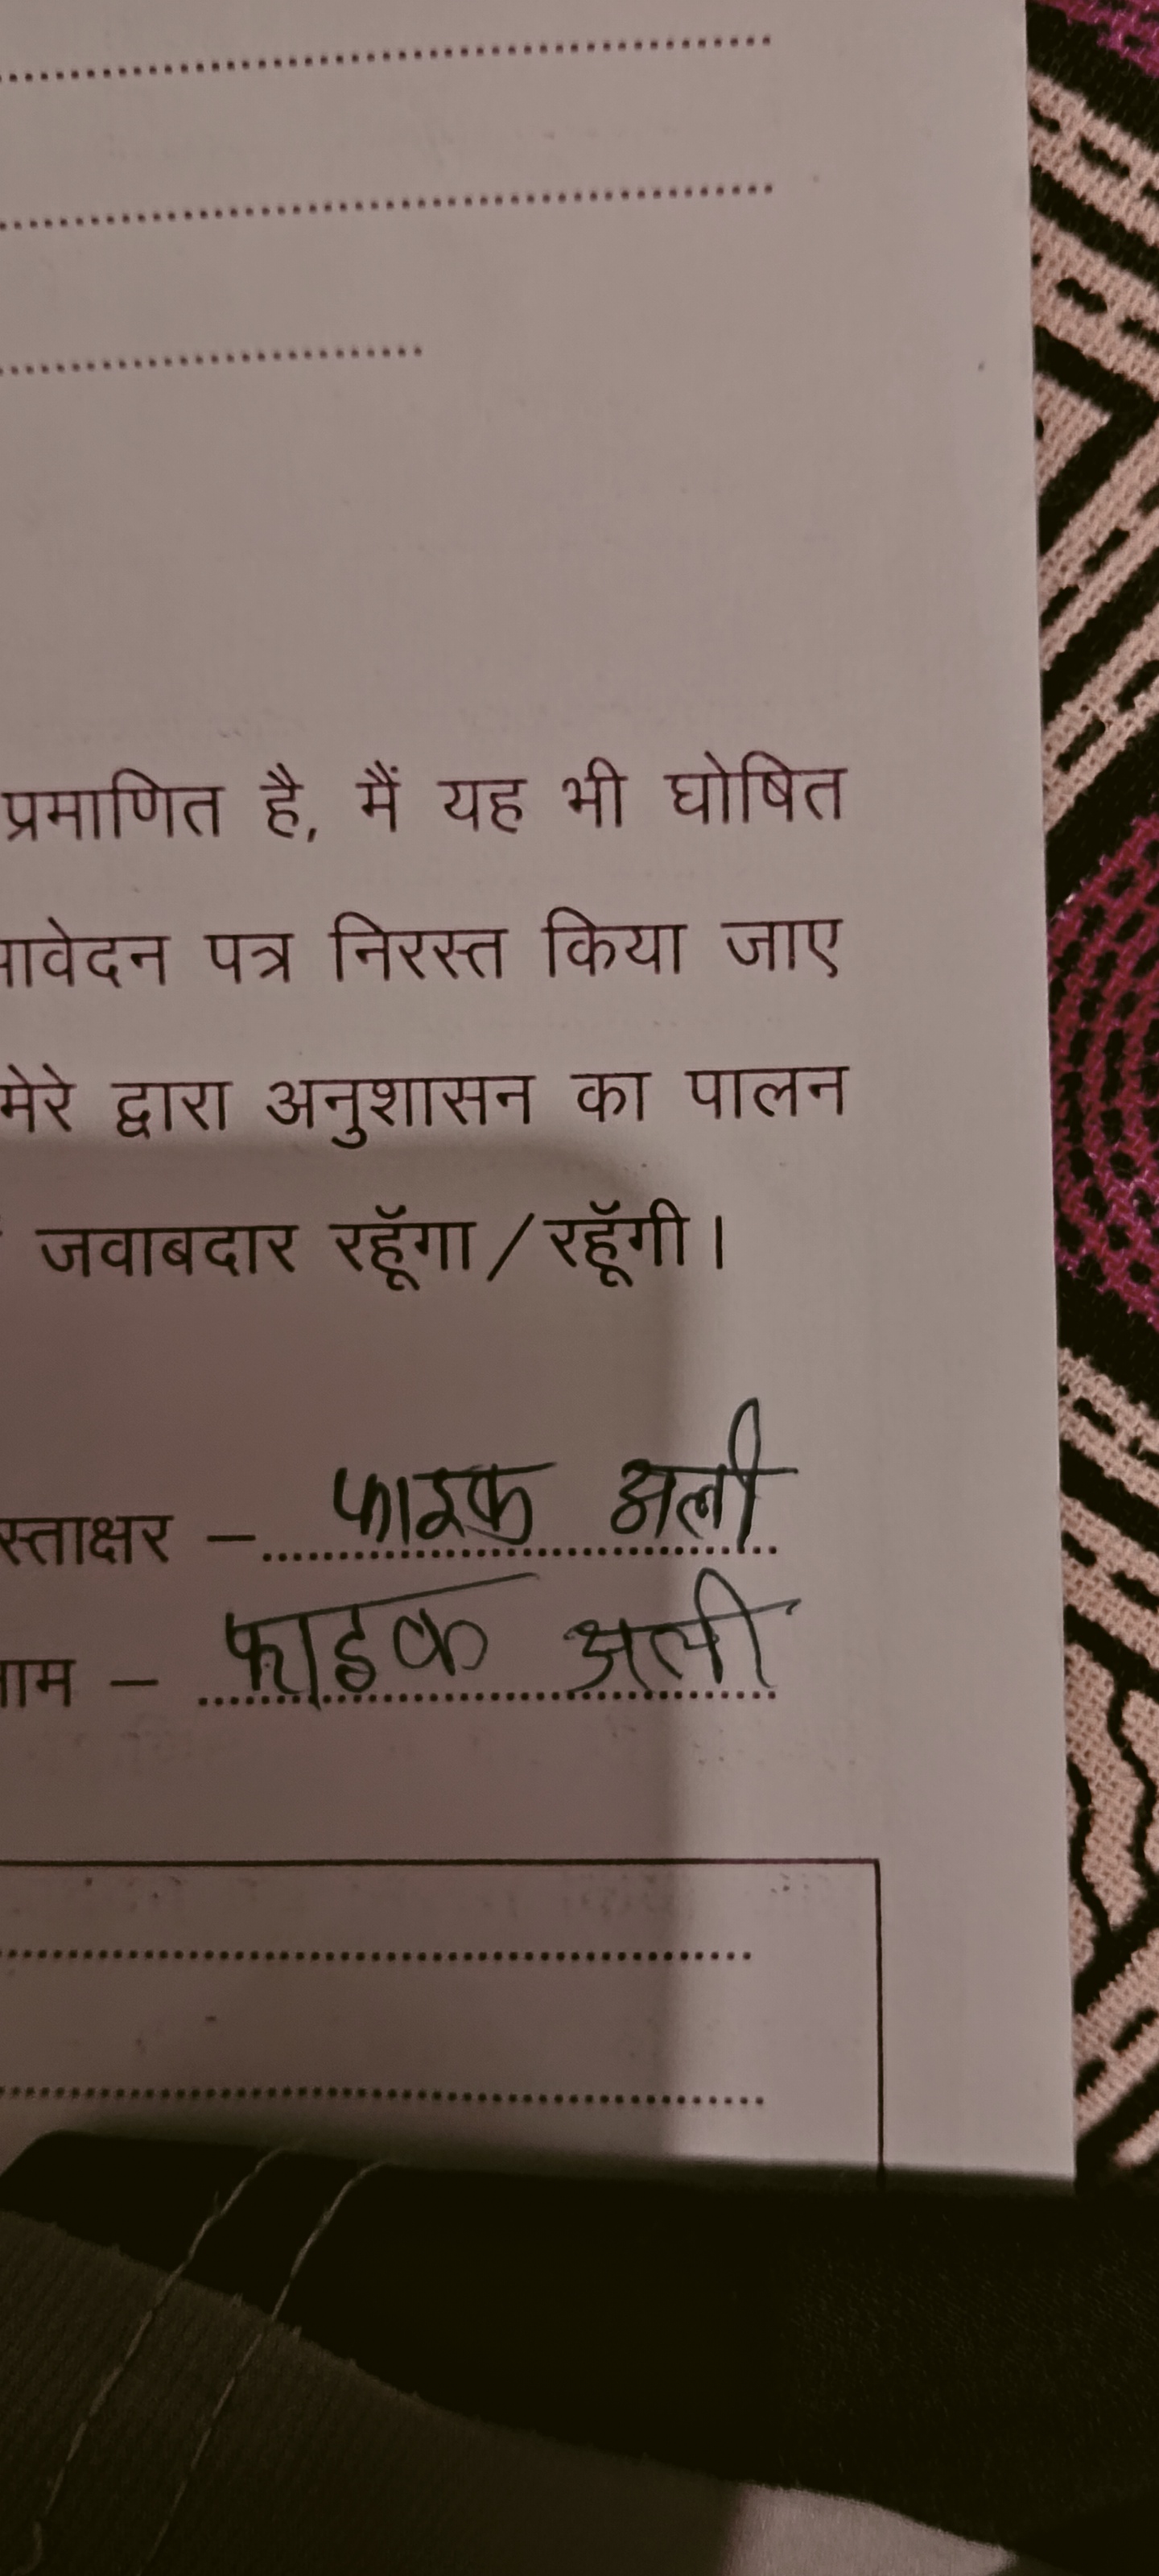 प्रमाणित है, मैं यह भी घोषित
आवेदन पत्र निरस्त किया जाए
मेरे द्वारा अनुशासन का पालन
जवाबदार रहूँगा/रहूँगी।
स्ताक्षर – फाइक अली
नाम – फाइक अली